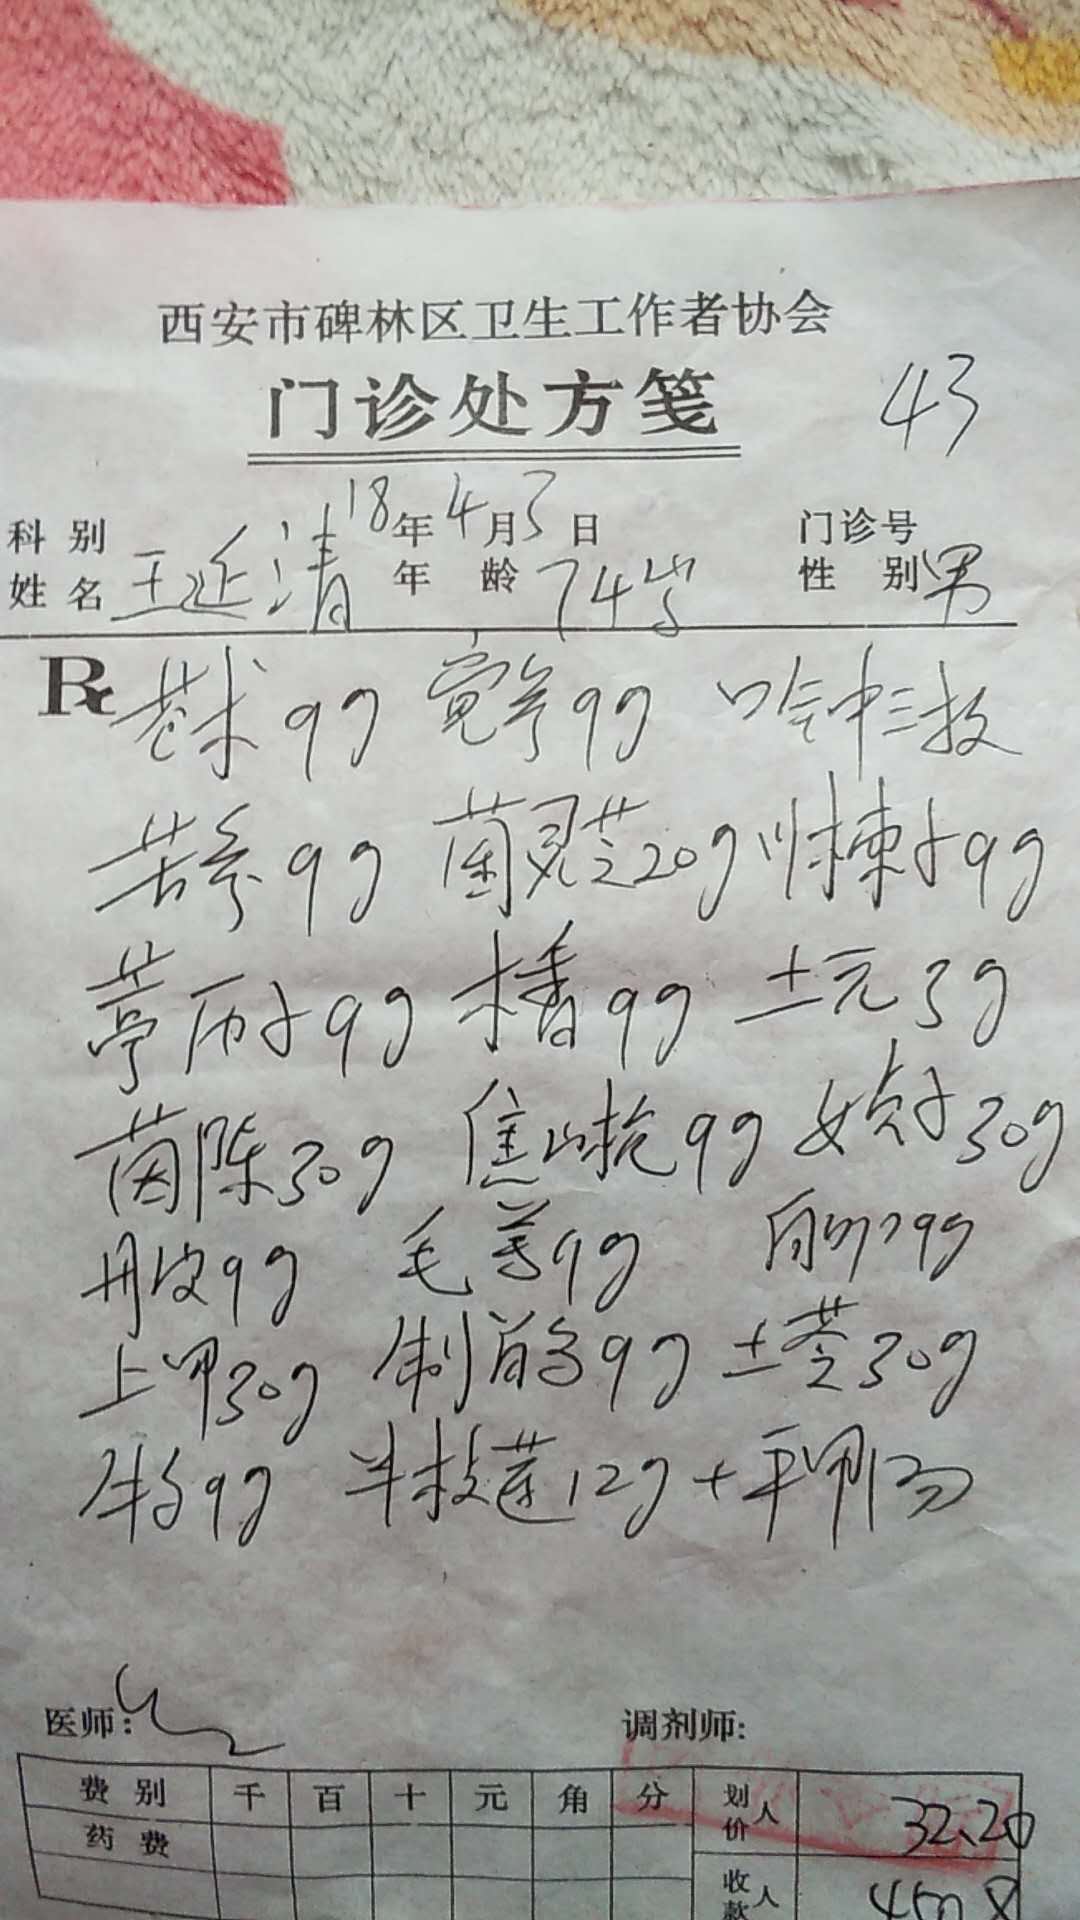 西安市碑林区卫生工作者协会
门诊处方笺
43
科别 18年4月3日 门诊号
姓名 王延清 年龄 74岁 性别 男
R 苍术9g 9g 三枝
苦参9g 菌灵芝20g 川楝子9g
葶历子9g 木香9g 土元3g
茵陈30g 焦山楂9g 女贞子30g
丹皮9g 毛 9g 9g
上甲30g 制首乌9g 土苓30g
9g 半枝莲12g + 平甲
医师: 调剂师:
费别 千 百 十 元 角 分 划价人 32.20
药费
收款人 450.8